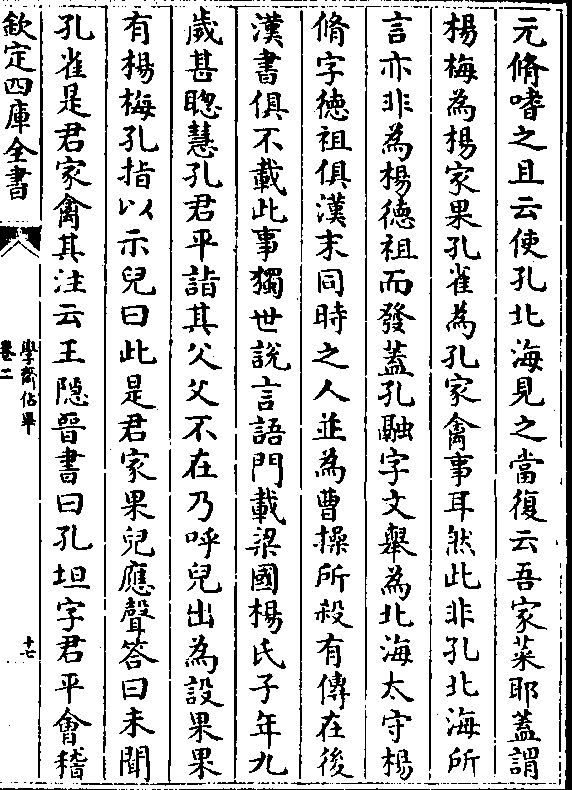 元脩嗜之且云使孔北海見之當復云吾家菜耶蓋謂
楊梅為楊家果孔雀為孔家禽事耳然此非孔北海所
言亦非為楊德祖而發蓋孔融字文舉為北海太守楊
脩字德祖俱漢末同時之人並為曹操所殺有傳在後
漢書俱不載此事獨世說言語門載梁國楊氏子年九
歲甚聰慧孔君平詣其父父不在乃呼兒出為設果果
有楊梅孔指以示兒曰此是君家果兒應聲答曰未聞
孔雀是君家禽其注云王隱晉書曰孔坦字君平會稽
欽定四庫全書
學齋佔畢
卷二
十七